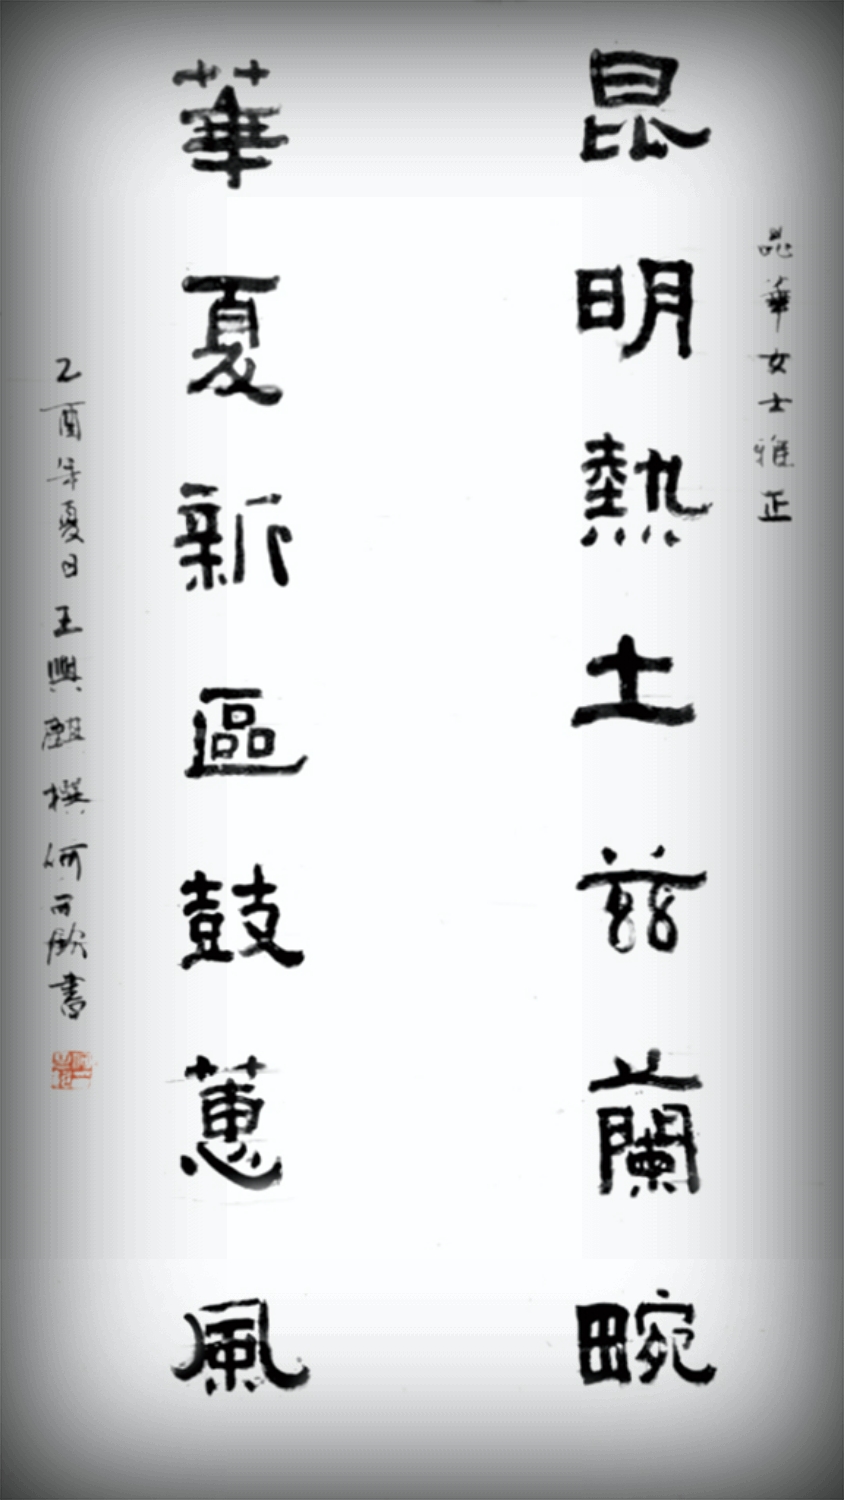 昆華女士雅正
昆明熱土茲蘭畹
華夏新區鼓蕙風
乙酉年夏日王興麒撰何書